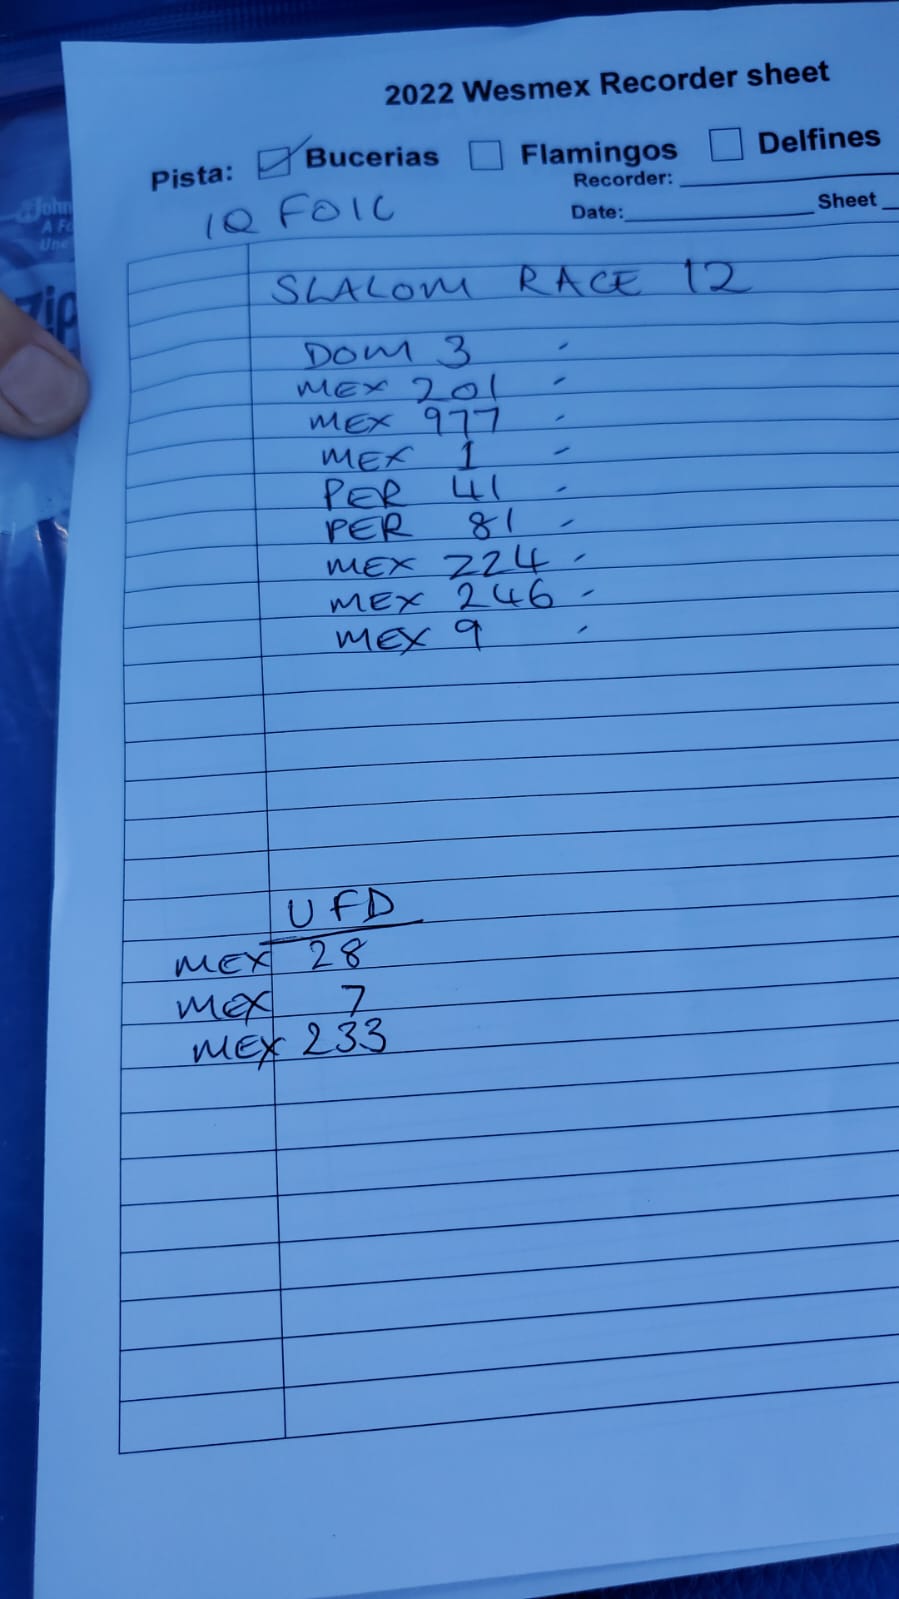 2022 Wesmex Recorder sheet
Pista: Bucerias Flamingos Delfines
Recorder:
Date: Sheet
IQ FOIL
SLALOM RACE 12
DOM 3
MEX 201
MEX 977
MEX 1
PER 41
PER 81
MEX 224
MEX 246
MEX 9
UFD
MEX 28
MEX 7
MEX 233
John
A Fa
Une
Zip